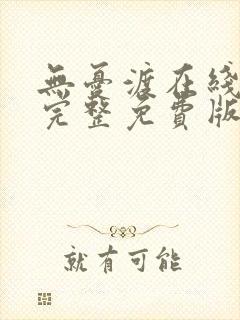 無憂渡在綫
完整免費版
就有可能